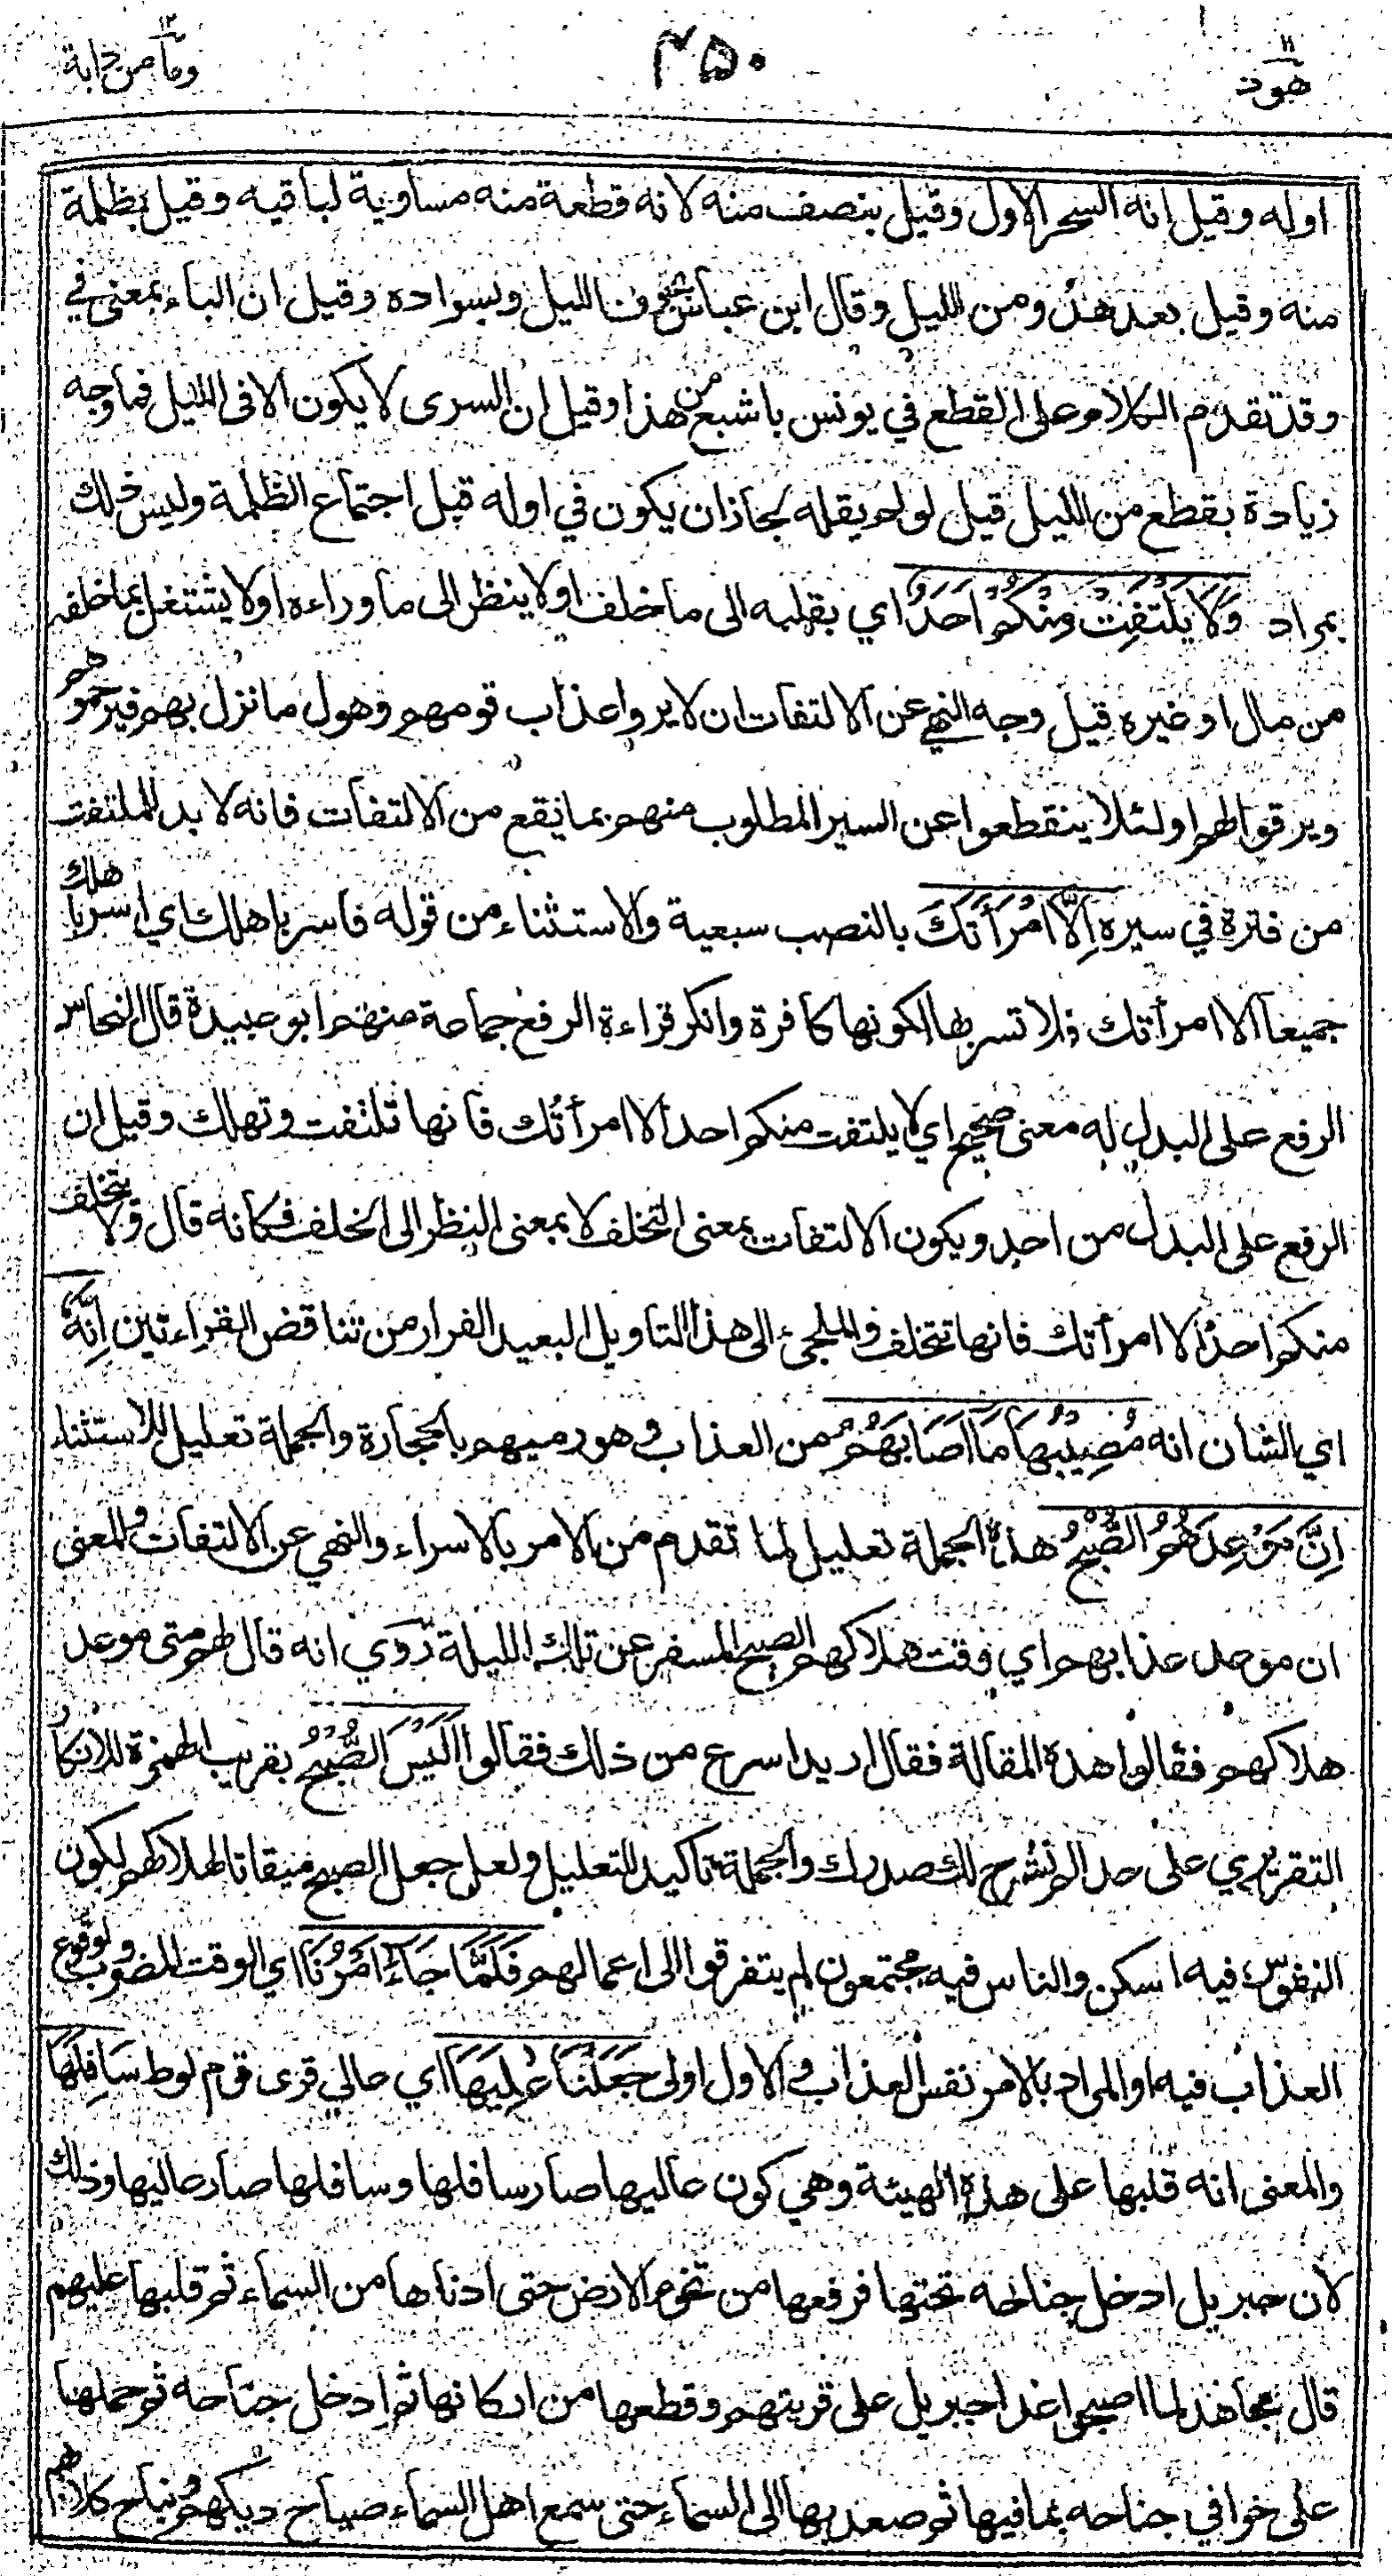 ۱۱ هود
۴۵۰
۱۲ وما من دابة
اوله وقيل انه السحر الاول وقيل بنصف منه لانه قطعة منه مساوية لباقيه وقيل بظلمة
منه وقيل بعد هدء من الليل وقال ابن عباس جوف الليل وبسواده وقيل ان الباء بمعنى في
وقد تقدم الكلام على القطع في يونس باشبع من هذا وقيل ان السرى لا يكون الا في الليل فما وجه
زيادة بقطع من الليل قيل لو لم يقله لجاز ان يكون في اوله قبل اجتماع الظلمة وليس ذلك
بمراد وَلَا يَلْتَفِتْ مِنْكُمْ اَحَدٌ اي بقلبه الى ما خلف او لا ينظر الى ما وراءه او لا يشتغل بما خلفه
من مال او غيره قيل وجه النهي عن الالتفات ان لا يروا عذاب قومهم وهول ما نزل بهم فيرحموهم
ويرقوا لهم او لئلا ينقطعوا عن السير المطلوب منهم بما يقع من الالتفات فانه لا بد للملتفت
من فترة في سيره اِلَّا امْرَاَتَكَ بالنصب سبعية والاستثناء من قوله فاسر باهلك اي اسر باهلك
جميعا الا امرأتك فلا تسر بها لكونها كافرة وانكر قراءة الرفع جماعة منهم ابو عبيدة قال النحاس
الرفع على البدل له معنى صحيح اي لا يلتفت منكم احد الا امرأتُك فانها تلتفت وتهلك وقيل ان
الرفع على البدل من احد ويكون الالتفات بمعنى التخلف لا بمعنى النظر الى الخلف فكانه قال ولا يتخلف
منكم احد الا امرأتك فانها تتخلف والملجئ الى هذا التاويل البعيد الفرار من تناقض القراءتين اِنَّهُ
اي الشان انه مُصِيْبُهَا مَا اَصَابَهُمْ من العذاب وهو رميهم بالحجارة والجملة تعليل للاستثناء
اِنَّ مَوْعِدَهُمُ الصُّبْحُ هذه الجملة تعليل لما تقدم من الامر بالاسراء والنهي عن الالتفات والمعنى
ان موعد عذابهم اي وقت هلاكهم الصبح المسفر عن تلك الليلة روي انه قال لهم متى موعد
هلاكهم فقالوا هذه المقالة فقال اريد اسرع من ذلك فقالوا اَلَيْسَ الصُّبْحُ بقريب الهمزة للانكار
التقريري على حد الم نشرح لك صدرك والجملة تاكيد للتعليل ولعل جعل الصبح ميقاتا لهلاكهم لكون
النفوس فيه اسكن والناس فيه مجتمعون لم يتفرقوا الى اعمالهم فَلَمَّا جَآءَ اَمْرُنَا اي الوقت المضروب لوقوع
العذاب فيه او المراد بالامر نفس العذاب والاول اولى جَعَلْنَا عَالِيَهَا اي عالي قرى قوم لوط سَافِلَهَا
والمعنى انه قلبها على هذه الهيئة وهي كون عاليها صار سافلها وسافلها صار عاليها وذلك
لان جبريل ادخل جناحه تحتها فرفعها من تخوم الارض حتى ادناها من السماء ثم قلبها عليهم
قال مجاهد لما اصبحوا غدا جبريل على قريتهم وقطعها من اركانها ثم ادخل جناحه ثم حملها
على خوافي جناحه بما فيها ثم صعد بها الى السماء حتى سمع اهل السماء صياح ديكهم ونباح كلابهم